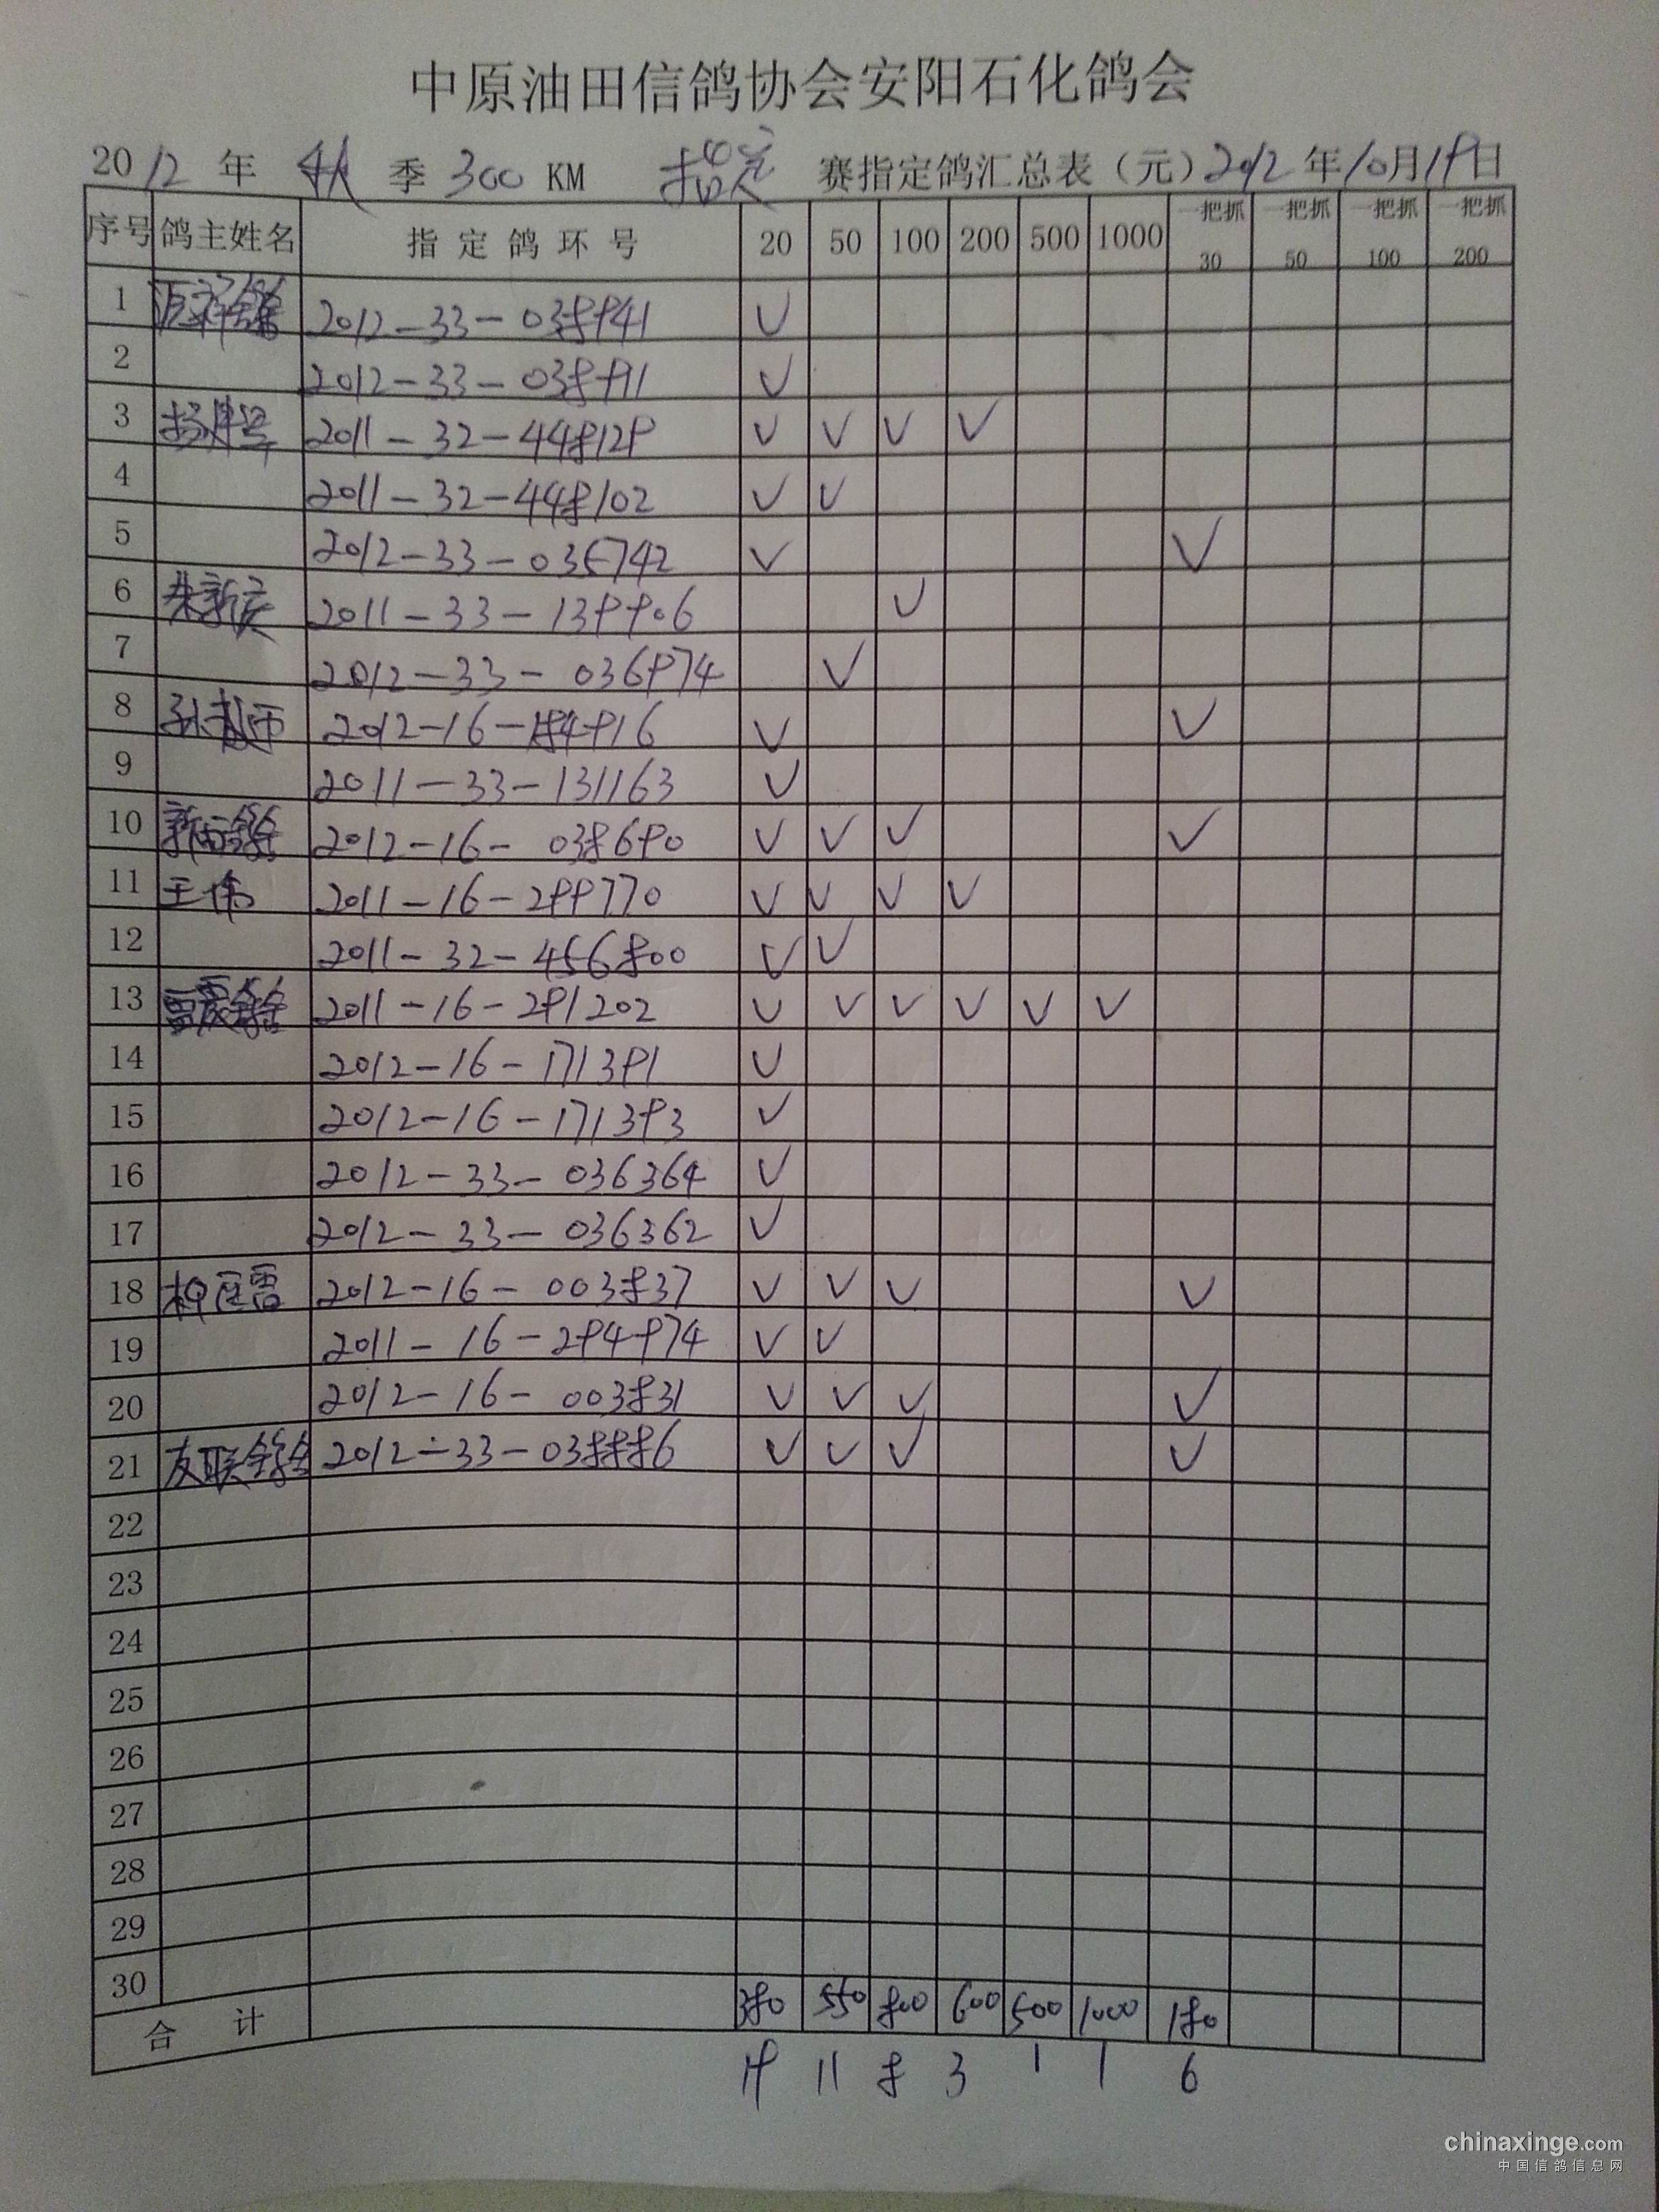 中原油田信鸽协会安阳石化鸽会
2012年 秋 季 300 KM 指定 赛指定鸽汇总表（元）2012年10月19日
序号 鸽主姓名 指定鸽环号 20 50 100 200 500 1000 一把抓30 一把抓50 一把抓100 一把抓200
1 2012-33-038941 ✓
2 2012-33-038991 ✓
3 2011-32-448129 ✓ ✓ ✓ ✓
4 2011-32-448102 ✓ ✓
5 2012-33-035742 ✓ ✓
6 朱新 2011-33-139906 ✓
7 2012-33-036974 ✓
8 2012-16-184916 ✓ ✓
9 2011-33-131163 ✓
10 2012-16-038690 ✓ ✓ ✓ ✓
11 王伟 2011-16-299770 ✓ ✓ ✓ ✓
12 2011-32-456800 ✓ ✓
13 2011-16-291202 ✓ ✓ ✓ ✓ ✓ ✓
14 2012-16-171391 ✓
15 2012-16-171393 ✓
16 2012-33-036364 ✓
17 2012-33-036362 ✓
18 2012-16-003837 ✓ ✓ ✓ ✓
19 2011-16-294974 ✓ ✓
20 2012-16-003831 ✓ ✓ ✓ ✓
21 友联鸽舍 2012-33-038886 ✓ ✓ ✓ ✓
22
23
24
25
26
27
28
29
30
合计 380 550 800 600 500 1000 180
19 11 8 3 1 1 6
chinaxinge.com
中国信鸽信息网